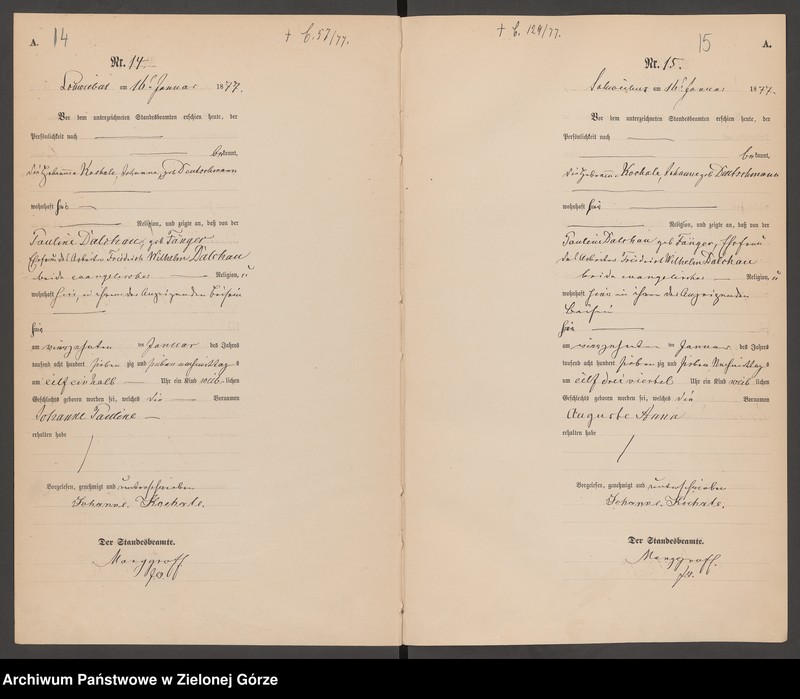 A. 14
† C. 57/77.
Nr. 14.
am 16t Januar 1877.
Vor dem unterzeichneten Standesbeamten erschien heute, der
Persönlichkeit nach
bekannt,
die Hebamme Kochale, Johanne, geb Deutschmann
wohnhaft hier
Religion, und zeigte an, daß von der
Pauline Dalchau, geb Fänger
Ehefrau des Arbeiters Friedrich Wilhelm Dalchau
beide evangelischer Religion,
wohnhaft hier, in des Anzeigenden Beisein
hier
am vierzehnten Januar des Jahres
tausend acht hundert sieben zig und sieben nachmittags
um eilf einhalb Uhr ein Kind weib lichen
Geschlechts geboren worden sei, welches die Vornamen
Johanne Pauline
erhalten habe
Vorgelesen, genehmigt und unterschrieben
Johanne. Kochale.
Der Standesbeamte.
Marggraff
† C. 129/77.
15 A.
Nr. 15.
am 16t Januar 1877.
Vor dem unterzeichneten Standesbeamten erschien heute, der
Persönlichkeit nach
bekannt,
die Hebamme Kochale, Johanne geb Deutschmann
wohnhaft hier
Religion, und zeigte an, daß von der
Pauline Dalchau geb Fänger, Ehefrau
des Arbeiters Friedrich Wilhelm Dalchau
beide evangelischer Religion,
wohnhaft hier in des Anzeigenden
Beisein
hier
am vierzehnten Januar des Jahres
tausend acht hundert sieben zig und sieben Nachmittags
um eilf drei viertel Uhr ein Kind weib lichen
Geschlechts geboren worden sei, welches die Vornamen
Auguste Anna
erhalten habe
Vorgelesen, genehmigt und unterschrieben
Johanne. Kochale.
Der Standesbeamte.
Marggraff.
Archiwum Państwowe w Zielonej Górze